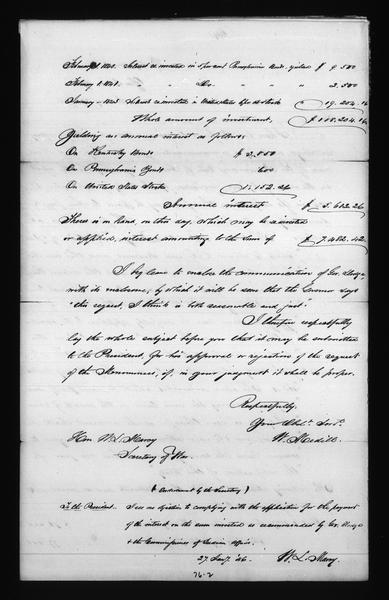 February 1840. Interest re invested in 5 per cent Pennsylvania Bonds, yielded $ 9.500
February 1. 1841. " " Do. " " " 2.500
January - 1843 Interest re invested in United States 6 per ct Stock 19.204.16
Whole amount of investment, $
Yielding an annual interest as follows:
On Kentucky Bonds $ 3.850
On Pennsylvania Bonds 600
On United State Stocks 1.152.26
Annual interest $ 5.602.26
There is on hand, on this day, which may be invested
or applied, interest amounting to the sum of $ 7.482.42
I beg leave to enclose the communication of Gov. Dodge
with its inclosure; by which it will be seen that the Governor says
"this request, I think is both reasonable and just."
I therefore respectfully
lay the whole subject before you that it may be submitted
to the President, for his approval or rejection of the request
of the Menominees, if, in your judgment it shall be proper.
Respectfully,
Your Obt. Servt.
Hon W. L. Marcy W. Medill.
Secretary of War.
(Endorsement by the Secretary)
To the President. I see no objection to complying with the application for the payment
of the interest on the sum invested as recommended by Gov. Dodge
& the Commissioner of Indian Affairs.
27 Jany '46. W. L. Marcy.
76-2